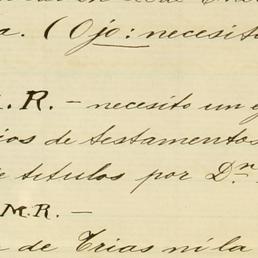 a. (Ojo: necesito
. R. - necesito un
ios de testamentos
e titulos por Dn.
M.R. -
de Trias ni la